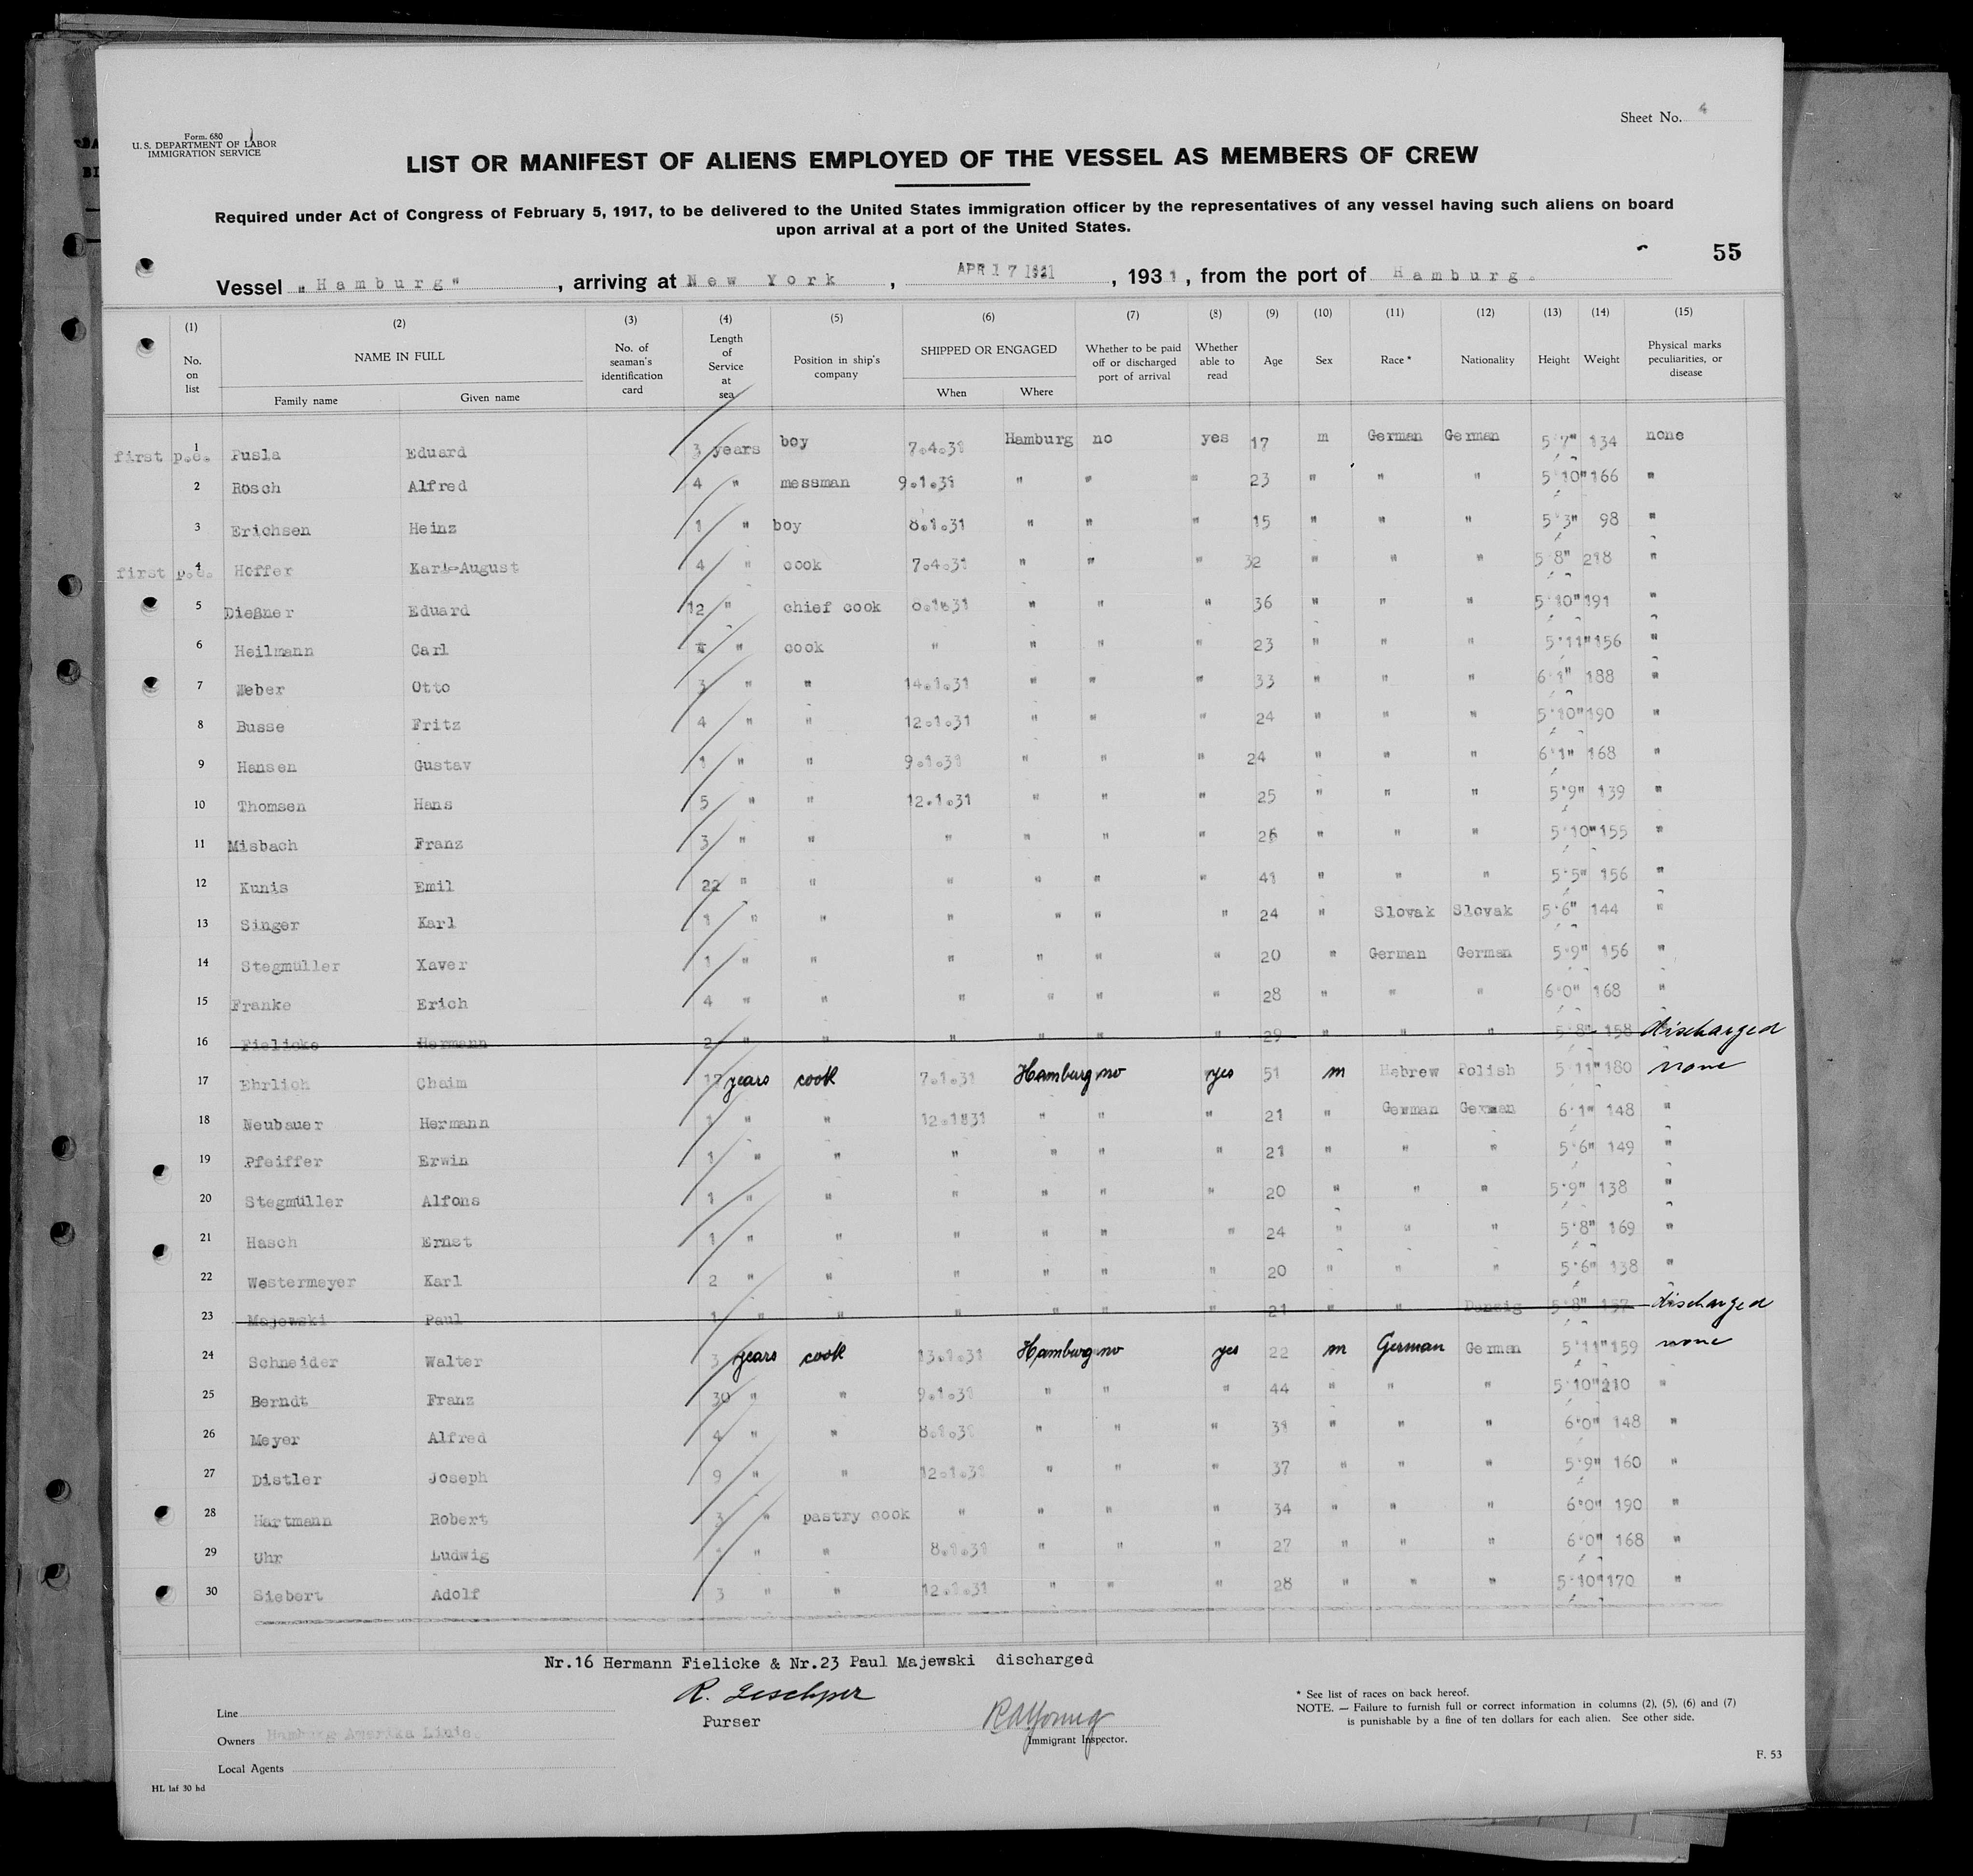 Sheet No. 4
Form. 680
U. S. DEPARTMENT OF LABOR
IMMIGRATION SERVICE
LIST OR MANIFEST OF ALIENS EMPLOYED OF THE VESSEL AS MEMBERS OF CREW
Required under Act of Congress of February 5, 1917, to be delivered to the United States immigration officer by the representatives of any vessel having such aliens on board
upon arrival at a port of the United States.
55
Vessel "Hamburg", arriving at New York, APR 17 1931, 1931, from the port of Hamburg.
(1) (2) (3) (4) (5) (6) (7) (8) (9) (10) (11) (12) (13) (14) (15)
No. on list NAME IN FULL Family name Given name No. of seaman's identification card Length of Service at sea Position in ship's company SHIPPED OR ENGAGED When Where Whether to be paid off or discharged port of arrival Whether able to read Age Sex Race * Nationality Height Weight Physical marks peculiarities, or disease
first p.e. 1 Pusla Eduard 3 years boy 7.4.31 Hamburg no yes 17 m German German 5'7" 134 none
2 Rösch Alfred 4 " messman 9.1.31 " " " 23 " " " 5'10" 166 "
3 Erichsen Heinz 1 " boy 8.1.31 " " " 15 " " " 5'3" 98 "
first p.e. 4 Hoffer Karl-August 4 " cook 7.4.31 " " " 32 " " " 5'8" 218 "
5 Dießner Eduard 12 " chief cook 8.1.31 " " " 36 " " " 5'10" 191 "
6 Heilmann Carl " cook " " " " 23 " " " 5'11" 156 "
7 Weber Otto 3 " " 14.1.31 " " " 33 " " " 6'1" 188 "
8 Busse Fritz 4 " " 12.1.31 " " " 24 " " " 5'10" 190 "
9 Hansen Gustav 1 " " 9.1.31 " " " 24 " " " 6'1" 168 "
10 Thomsen Hans 5 " " 12.1.31 " " " 25 " " " 5'9" 139 "
11 Misbach Franz 3 " " " " " " 26 " " " 5'10" 155 "
12 Kunis Emil 22 " " " " " " 41 " " " 5'5" 156 "
13 Singer Karl 1 " " " " " " 24 " Slovak Slovak 5'6" 144 "
14 Stegmüller Xaver 1 " " " " " " 20 " German German 5'9" 156 "
15 Franke Erich 4 " " " " " " 28 " " " 6'0" 168 "
16 Fielicke Hermann 2 " " " " " " 29 " " " 5'8" 158 discharged
17 Ehrlich Chaim 17 years cook 7.1.31 Hamburg no yes 51 m Hebrew Polish 5'11" 180 none
18 Neubauer Hermann 1 " " 12.1.31 " " " 21 " German German 6'1" 148 "
19 Pfeiffer Erwin 1 " " " " " " 21 " " " 5'6" 149 "
20 Stegmüller Alfons 1 " " " " " " 20 " " " 5'9" 138 "
21 Hasch Ernst 1 " " " " " " 24 " " " 5'8" 169 "
22 Westermeyer Karl 2 " " " " " " 20 " " " 5'6" 138 "
23 Majewski Paul 1 " " " " " " 21 " " Danzig 5'8" 157 discharged
24 Schneider Walter 3 years cook 13.1.31 Hamburg no yes 22 m German German 5'11" 159 none
25 Berndt Franz 30 " " 9.1.31 " " " 44 " " " 5'10" 210 "
26 Meyer Alfred 4 " " 8.1.31 " " " 31 " " " 6'0" 148 "
27 Distler Joseph 9 " " 12.1.31 " " " 37 " " " 5'9" 160 "
28 Hartmann Robert 3 " pastry cook " " " " 34 " " " 6'0" 190 "
29 Uhr Ludwig " " 8.1.31 " " " 27 " " " 6'0" 168 "
30 Siebert Adolf 3 " " 12.1.31 " " " 28 " " " 5'10" 170 "
Nr.16 Hermann Fielicke & Nr.23 Paul Majewski discharged
Line
Owners Hamburg Amerika Linie.
Local Agents
R. Leschper
Purser
R A Young
Immigrant Inspector.
* See list of races on back hereof.
NOTE. — Failure to furnish full or correct information in columns (2), (5), (6) and (7)
is punishable by a fine of ten dollars for each alien. See other side.
F. 53
HL laf 30 hd